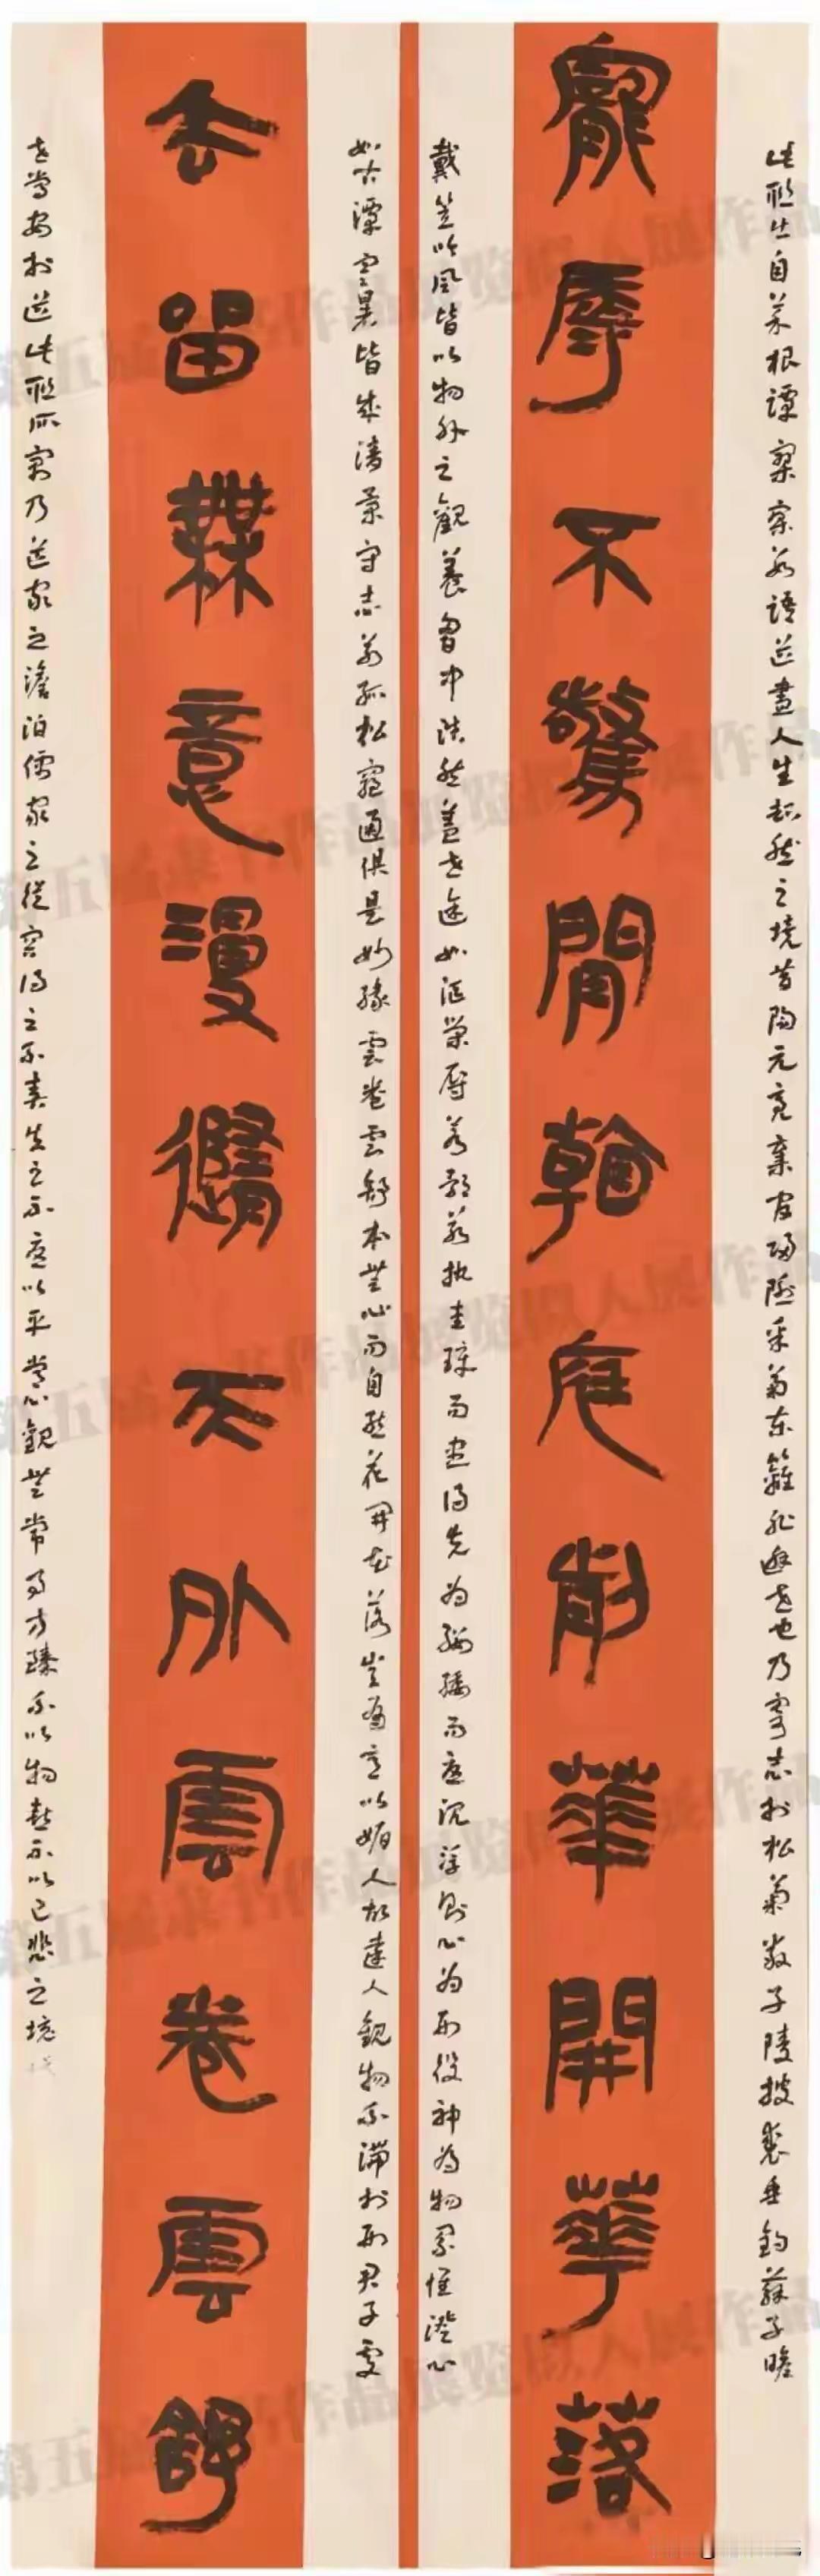 此聯出自菜根譚寥寥數語道盡人生超然之境昔陶元亮棄官歸隱采菊東籬非避世也乃寄志於松菊嚴子陵披裘垂釣蘇子瞻
寵辱不驚閒看庭前華開華落
戴笠吟風皆以物外之觀養胸中浩然蓋世途如流榮辱若影若執圭璋而患得失為纓縷而慮沉浮則心為形役神為物累惟澄心
如古潭雲影皆成清景守志若孤松窮通俱是妙緣雲卷雲舒本無心而自然花開花落豈有意以媚人故達人觀物不滯於形君子處
去留無意漫隨天外雲卷雲舒
世常安於道此聯所寓乃道家之澹泊儒家之從容得之不喜失之不憂以平常心觀無常事方臻不以物喜不以己悲之境